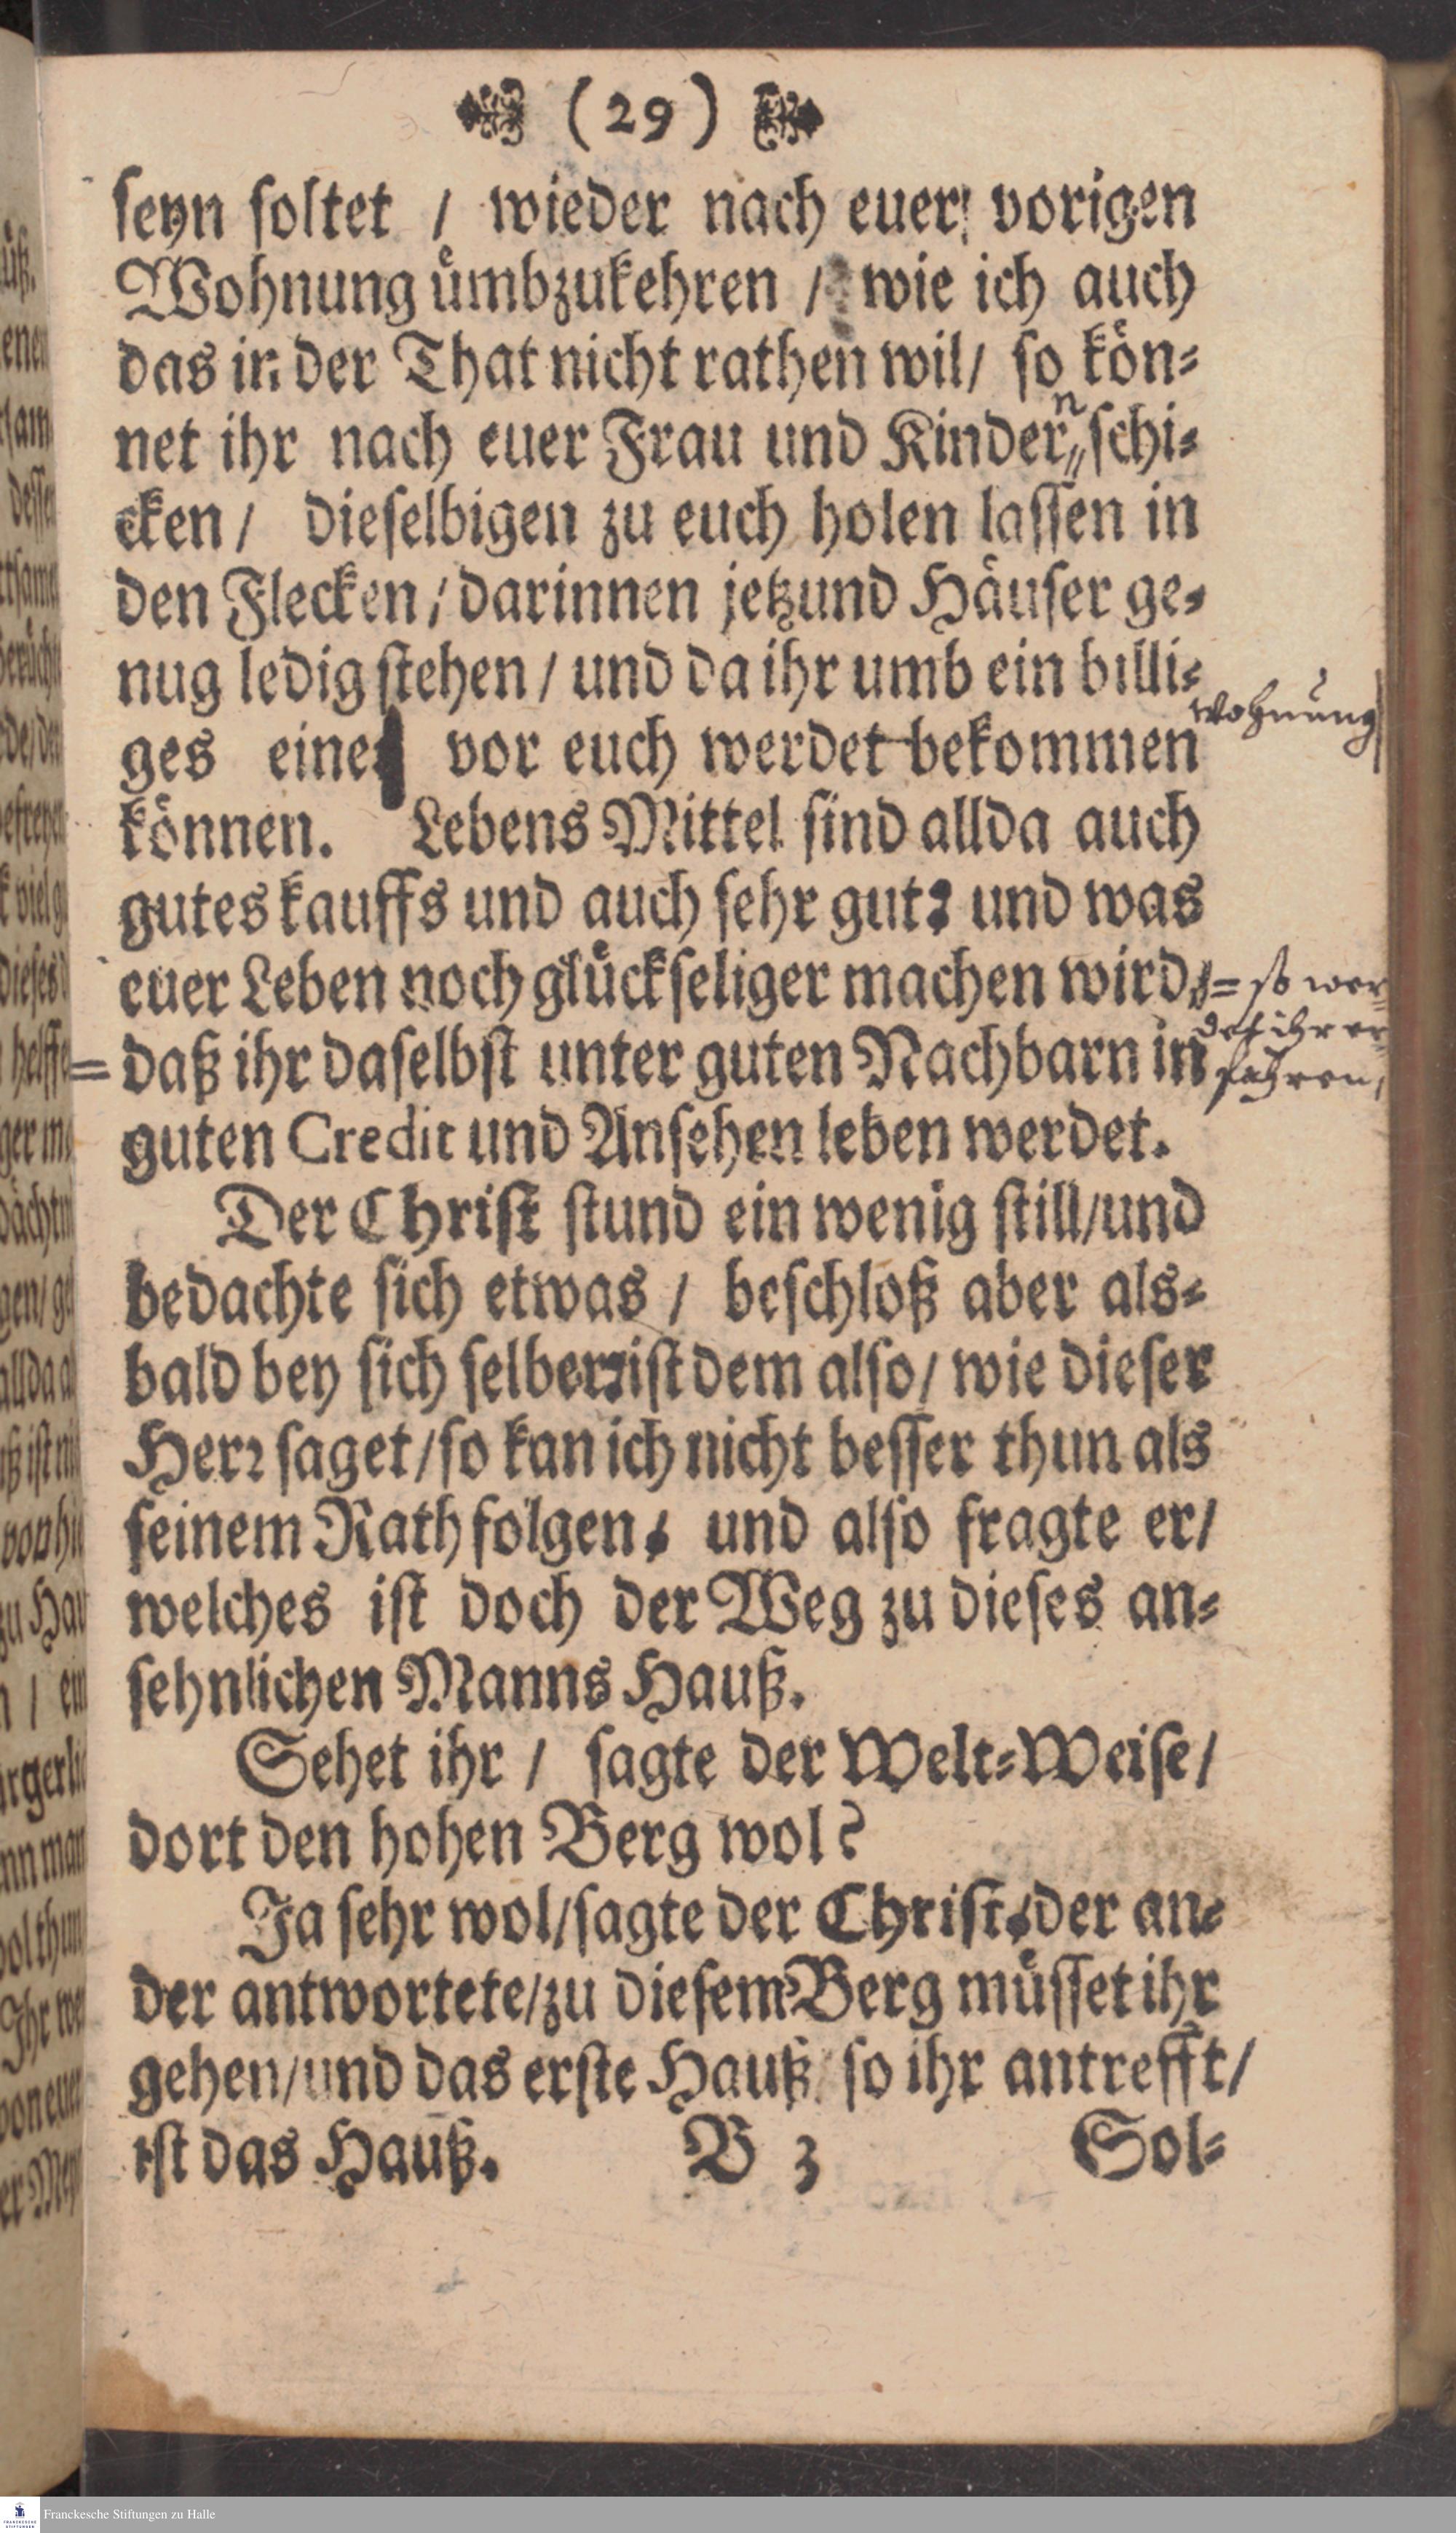 (29)
ſeyn ſoltet / wieder nach euer vorigen
Wohnung uͤmbzukehren / wie ich auch
das in der That nicht rathen wil/ ſo koͤn⸗
n
net ihr nach euer Frau und Kinder ſchi⸗
cken / dieſelbigen zu euch holen laſſen in
den Flecken / darinnen jetzund Haͤuſer ge⸗
nug ledig ſtehen / und da ihr umb ein billi⸗
wohnung
ges eine vor euch werdet bekommen
koͤnnen. Lebens Mittel ſind allda auch
gutes kauffs und auch ſehr gut; und was
euer Leben noch gluͤckſeliger machen wird,
= ſo wer⸗
det ihr er⸗
fahren,
= daß ihr daſelbſt unter guten Nachbarn in
guten Credit und Anſehen leben werdet.
Der Chriſt ſtund ein wenig ſtill/und
bedachte ſich etwas / beſchloß aber als⸗
bald bey ſich ſelber; iſt dem alſo / wie dieſer
Herꝛ ſaget / ſo kan ich nicht beſſer thun als
ſeinem Rath folgen; und alſo fragte er/
welches iſt doch der Weg zu dieſes an⸗
ſehnlichen Manns Hauß.
Sehet ihr / ſagte der Welt⸗Weiſe /
dort den hohen Berg wol?
Ja ſehr wol/ſagte der Chriſt; der an⸗
der antwortete/zu dieſem Berg muͤſſet ihr
gehen/und das erſte Hauß ſo ihr antrefft/
iſt das Hauß. B 3 Sol⸗
Franckesche Stiftungen zu Halle